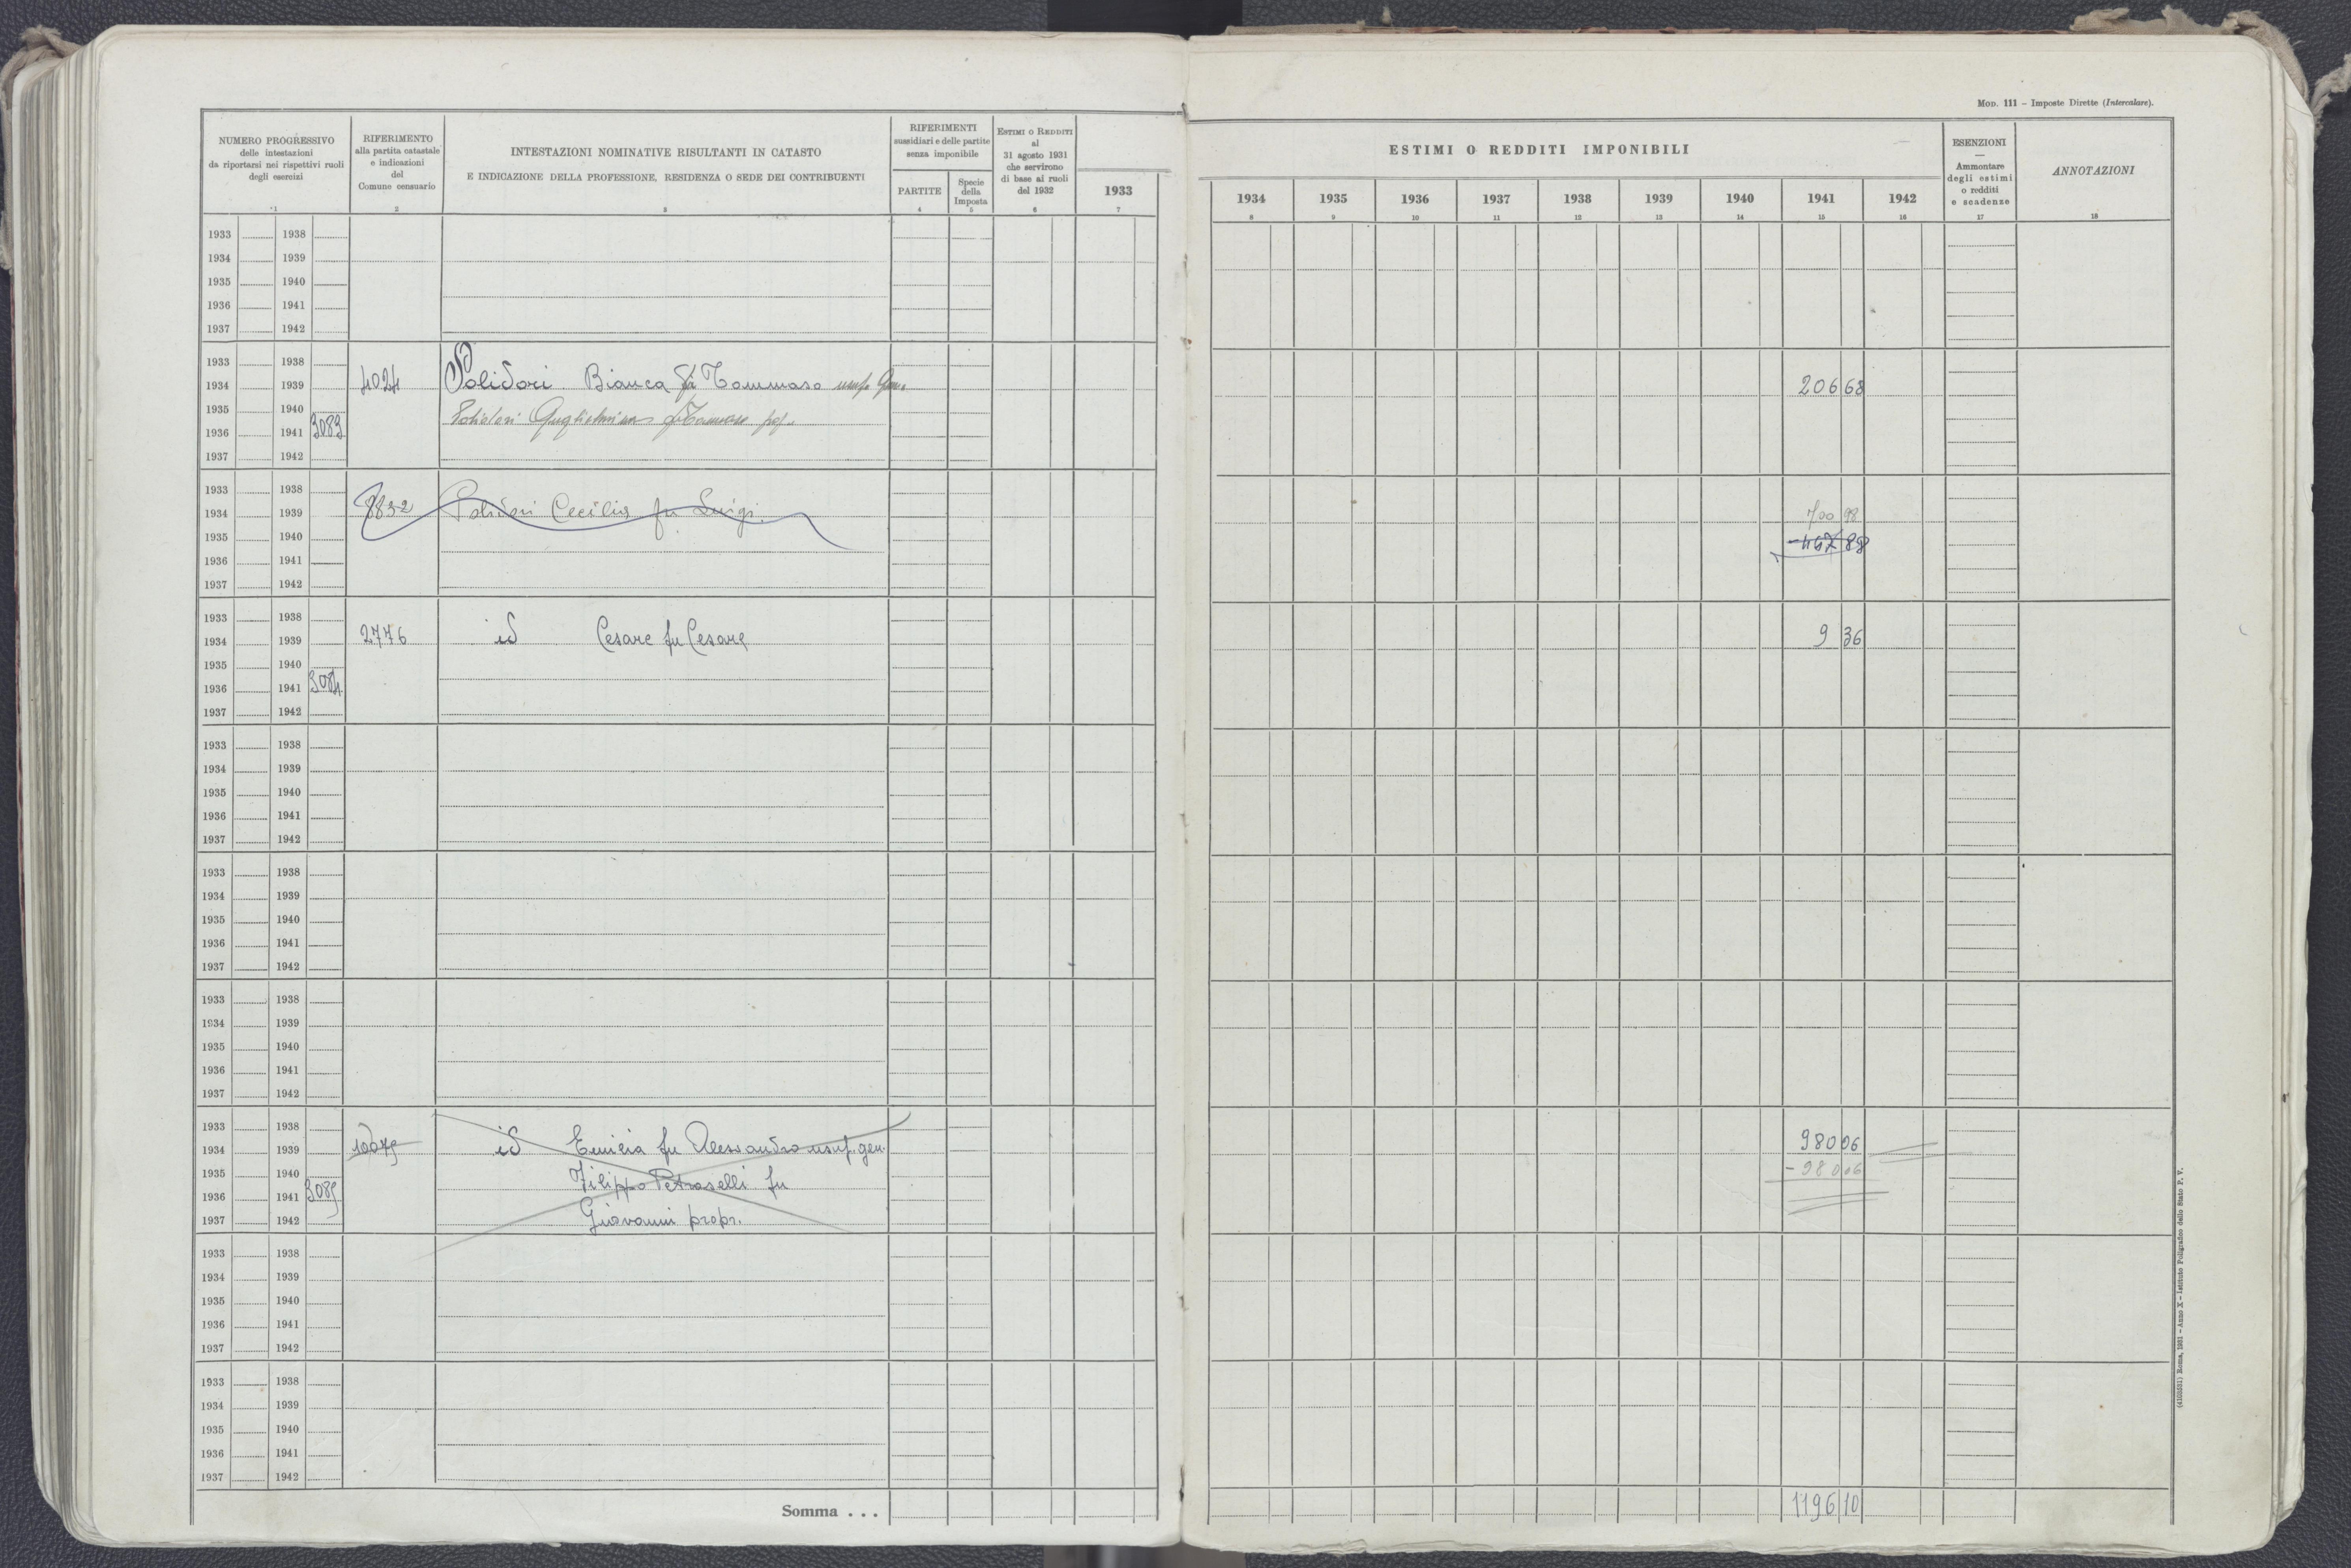 MOD. 111 – Imposte Dirette (Intercalare).
NUMERO PROGRESSIVO
delle intestazioni
da riportarsi nei rispettivi ruoli
degli esercizi
1
RIFERIMENTO
alla partita catastale
e indicazioni
del
Comune censuario
2
INTESTAZIONI NOMINATIVE RISULTANTI IN CATASTO
E INDICAZIONE DELLA PROFESSIONE, RESIDENZA O SEDE DEI CONTRIBUENTI
3
RIFERIMENTI
sussidiari e delle partite
senza imponibile
PARTITE
4
Specie
della
Imposta
5
ESTIMI O REDDITI
al
31 agosto 1931
che servirono
di base ai ruoli
del 1932
6
1933
7
ESTIMI O REDDITI IMPONIBILI
1934 1935 1936 1937 1938 1939 1940 1941 1942
8 9 10 11 12 13 14 15 16
ESENZIONI
—
Ammontare
degli estimi
o redditi
e scadenze
17
ANNOTAZIONI
18
1933 1938
1934 1939
1935 1940
1936 1941
1937 1942
1933 1938
1934 1939 4024 Polidori Bianca fu Tommaso usuf. 206 68
1935 1940 Polidori fu Tommaso
1936 1941 3083
1937 1942
1933 1938
1934 1939 8832 Polidori Cecilia fu Luigi 700 98
1935 1940 88
1936 1941
1937 1942
1933 1938
1934 1939 2776 id Cesare fu Cesare 9 36
1935 1940
1936 1941 3084
1937 1942
1933 1938
1934 1939
1935 1940
1936 1941
1937 1942
1933 1938
1934 1939
1935 1940
1936 1941
1937 1942
1933 1938
1934 1939
1935 1940
1936 1941
1937 1942
1933 1938
1934 1939 10079 id Emilia fu Alessandro usuf. gen. 980 06
1935 1940 Filippo Petraselli fu - 980 06
1936 1941 3085
1937 1942 Giovanni propr.
1933 1938
1934 1939
1935 1940
1936 1941
1937 1942
1933 1938
1934 1939
1935 1940
1936 1941
1937 1942
Somma . . . 1196 10
(4103531) Roma, 1931 – Anno X – Istituto Poligrafico dello Stato P. V.